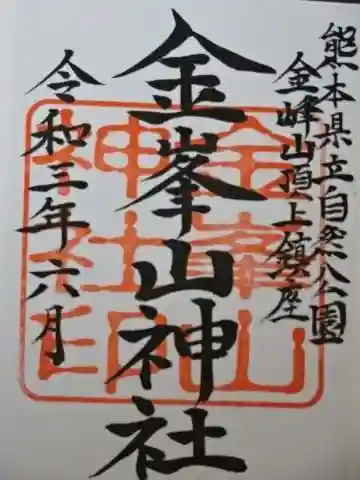 熊本県立自然公園
金峰山頂上鎮座
金峯山神社
令和三年六月
金峯山
神社印